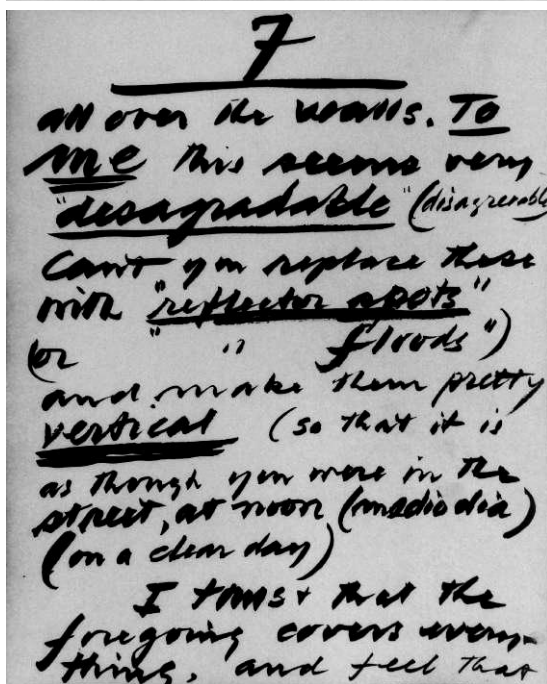 7
all over the walls. To
me this seems very
"desagradable" (disagreeable
Can't you replace these
with "reflector spots"
(or " " floods")
and make them pretty
vertical (so that it is
as though you were in the
street, at noon (mediodia)
(on a clear day)
I trust that the
foregoing covers every-
thing, and feel that